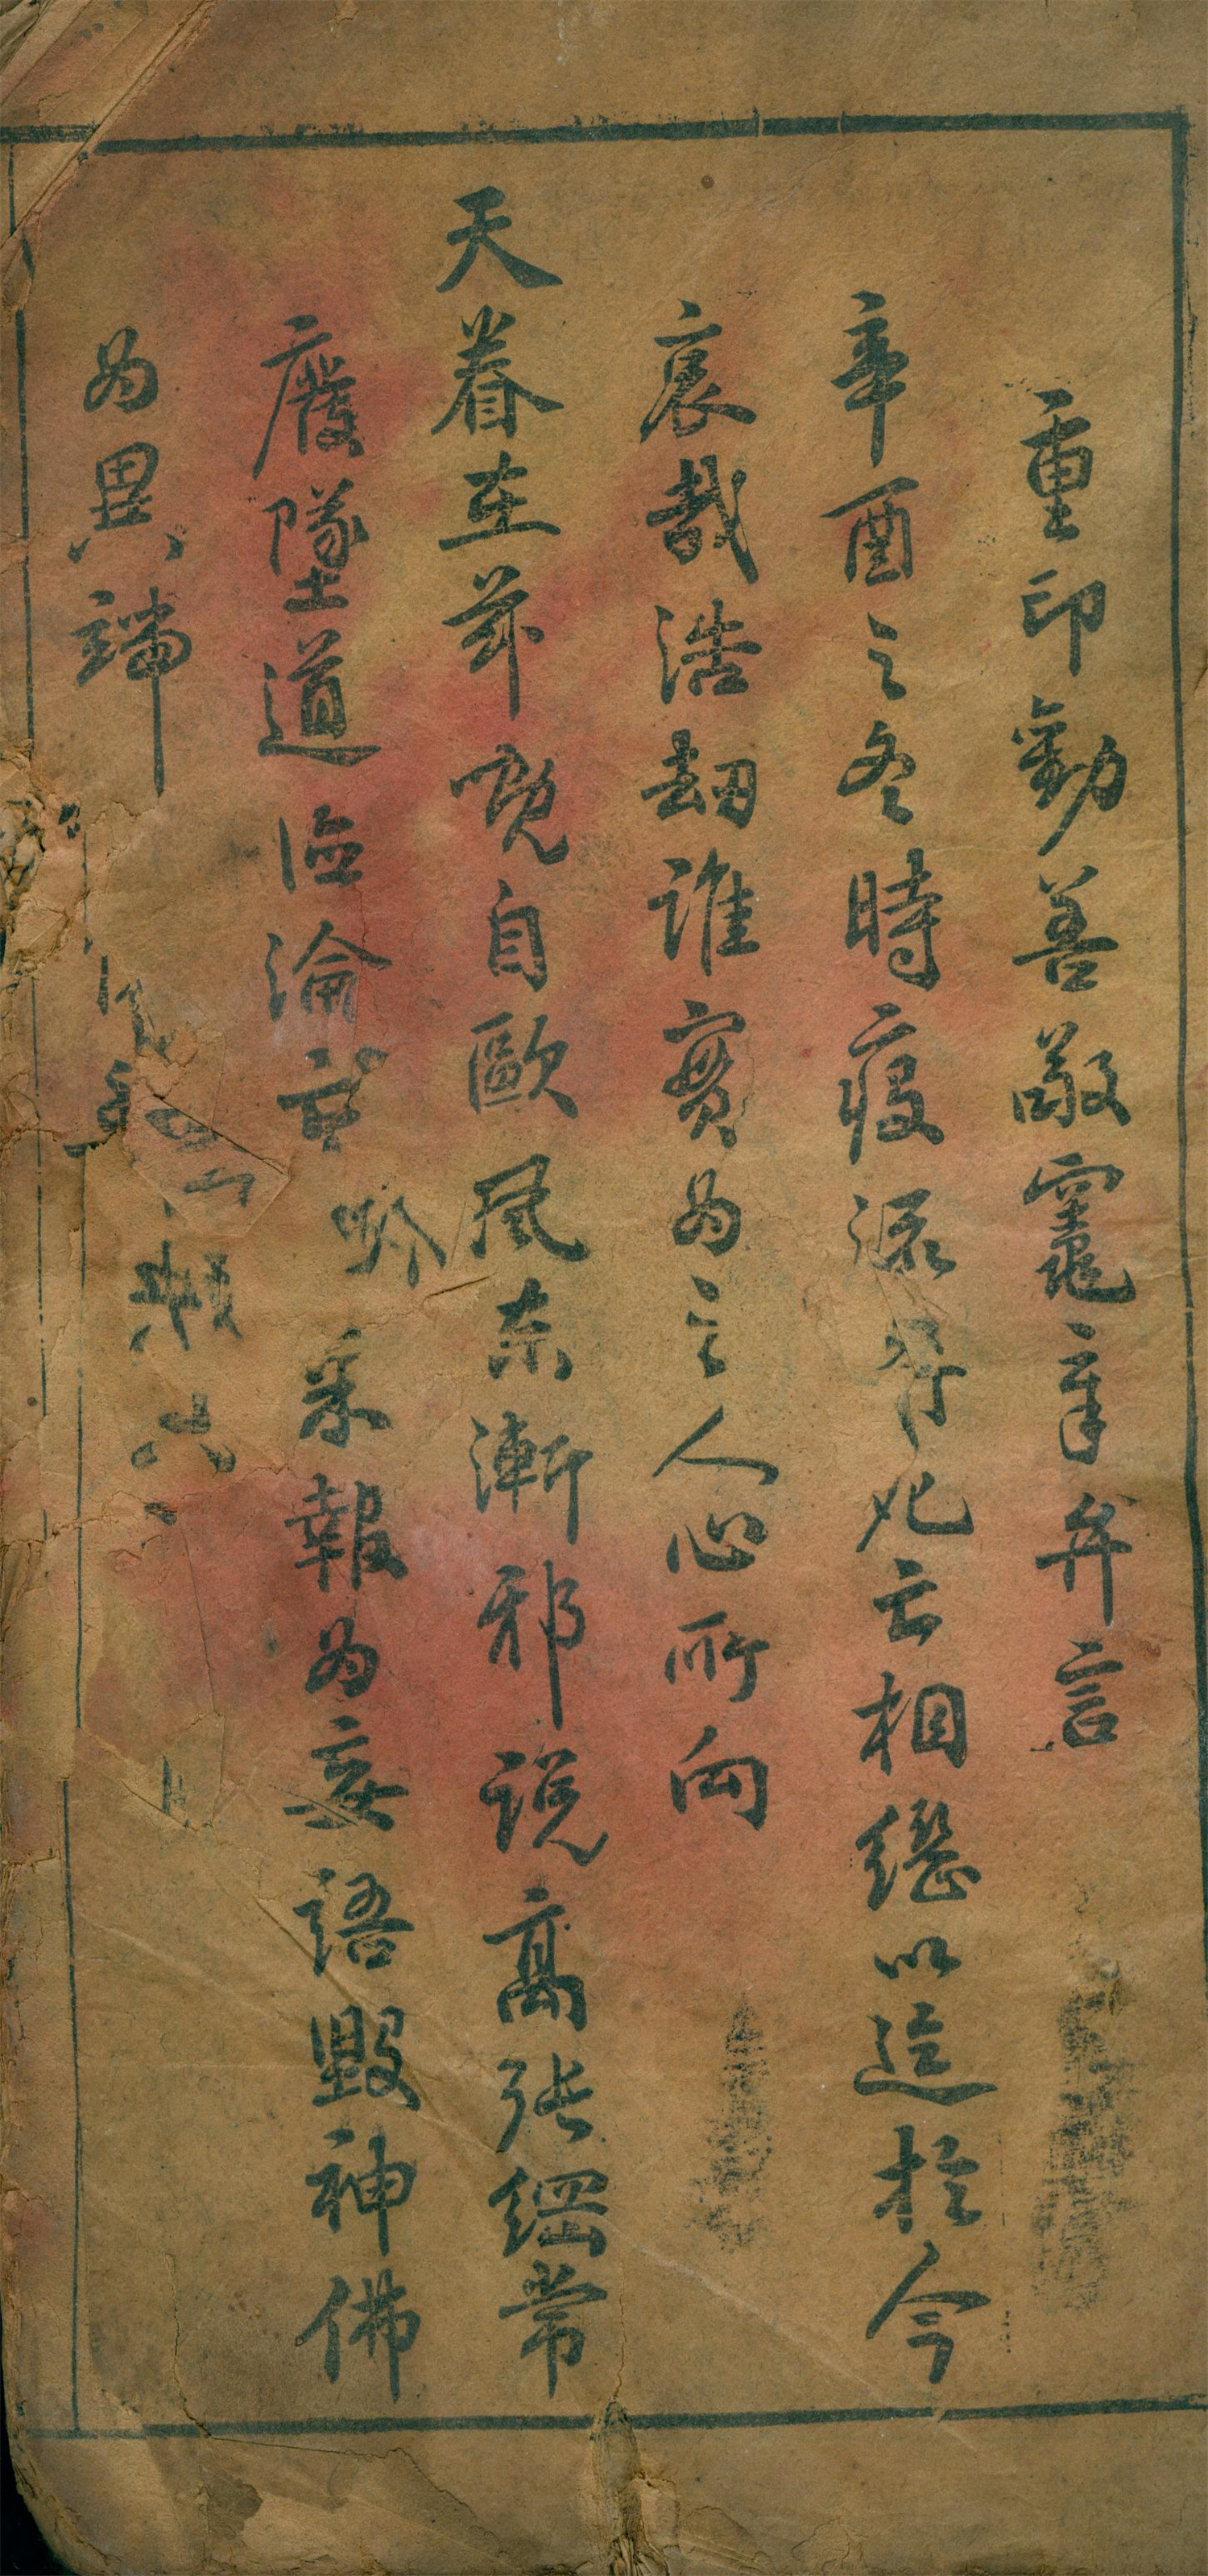 重印勸善敬竈章弁言
辛酉之冬時疫流行死亡相繼以迄於今
哀哉浩劫誰實為之人心所向
天眷在茲慨自歐風東漸邪說高張綱常
廢墜道德淪亡采報為妄語毀神佛
為異端